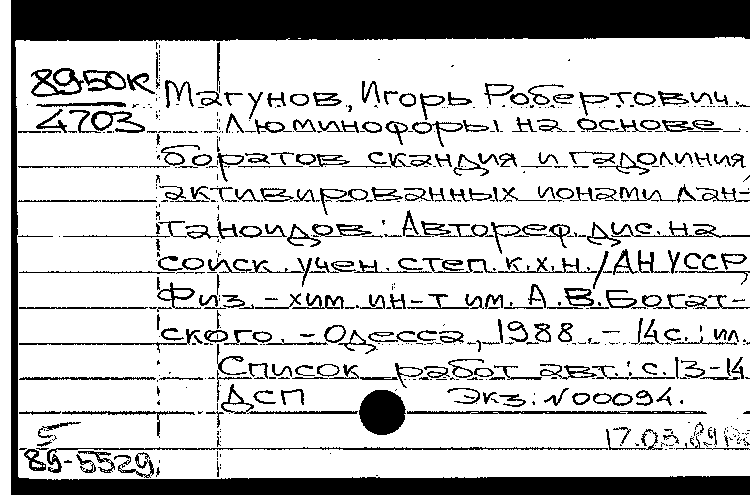 89-50к
4703
Магунов, Игорь Робертович.
Люминофоры на основе
боратов скандия и гадолиния,
активированных ионами лан-
таноидов: Автореф. дис. на
соиск. учен. степ. к.х.н. / АН УССР,
Физ.-хим. ин-т им. А.В. Богат-
ского. - Одесса, 1988. - 14 с.: ил.
Список работ авт.: с. 13-14
ДСП Экз. N 00094.
5
17.03.89
89-5529